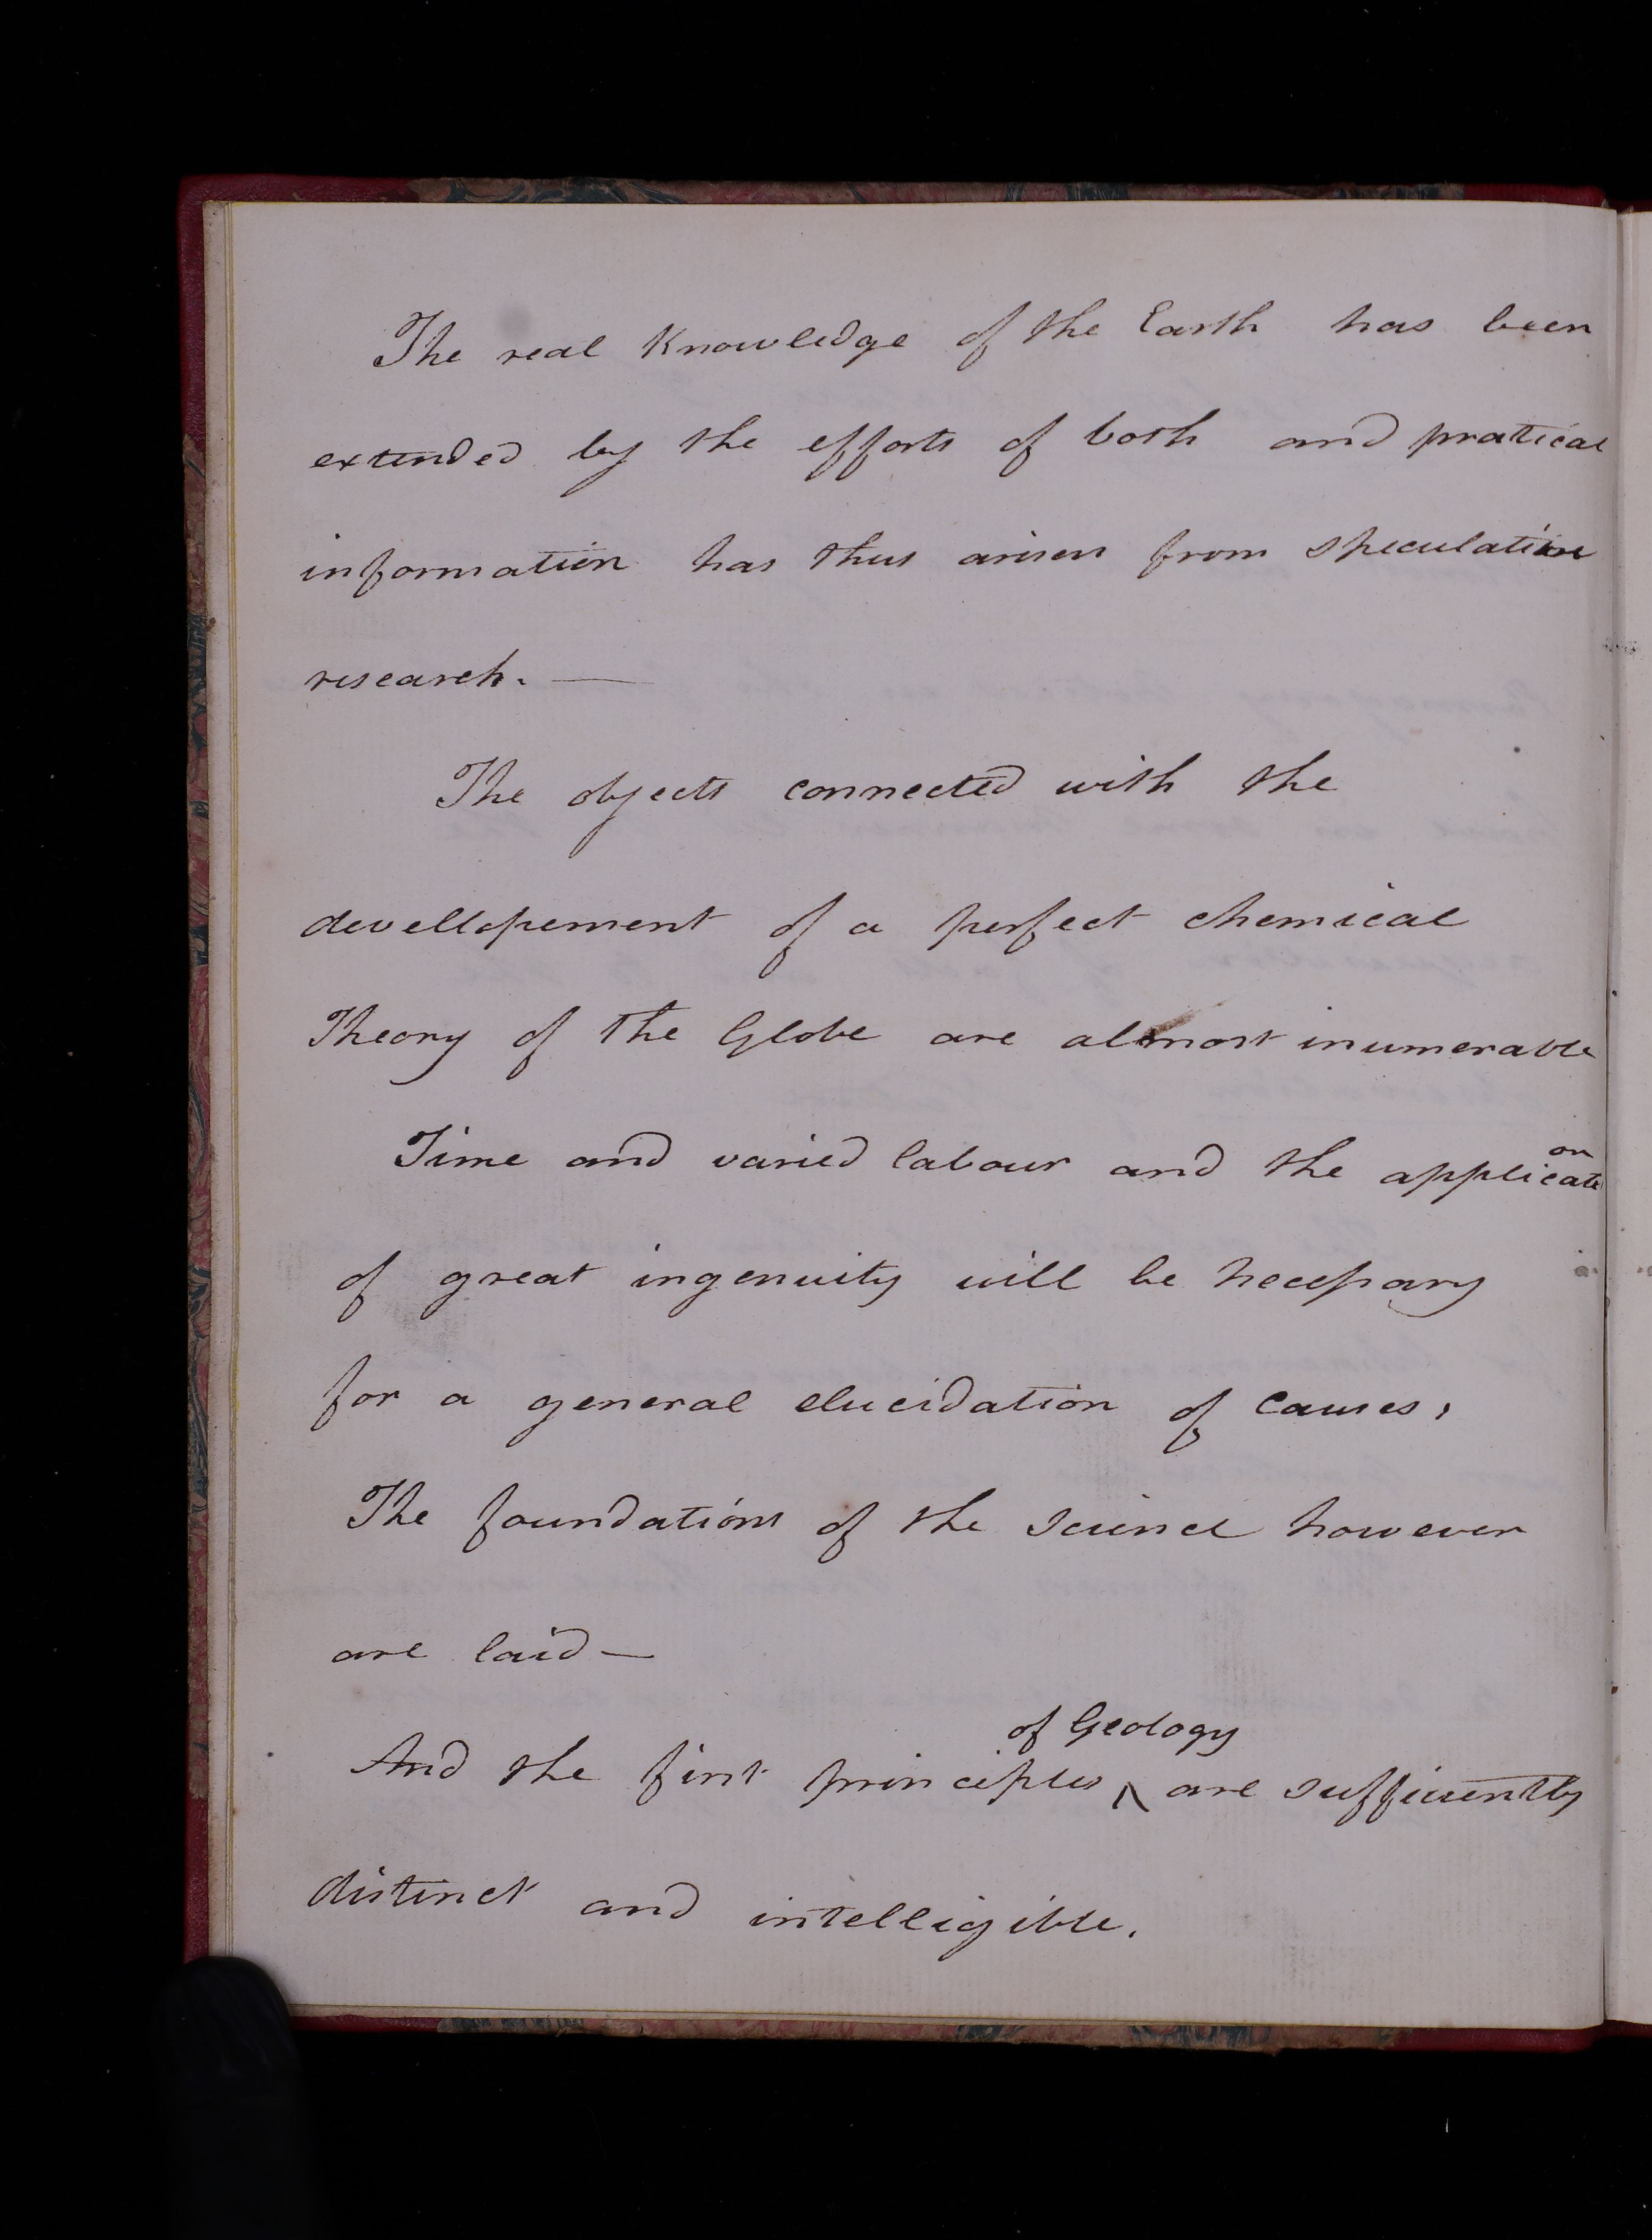 The real Knowledge of the Earth has been
extended by the efforts of both and pratical
information has thus arisen from speculative
research. —
The objects connected with the
devellopement of a perfect chemical
Theory of the Globe are almost inumerable
Time and varied labour and the applicatᵒⁿ
of great ingenuity will be necessary
for a general elucidation of causes,
The foundations of the science however
are laid —
of Geology
And the first principles ^ are sufficiently
distinct and intelligible.